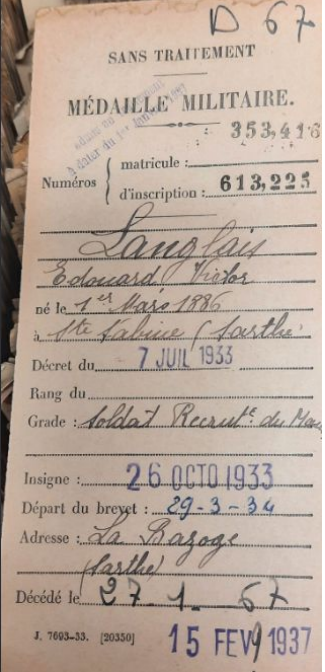 D 67
SANS TRAITEMENT
MÉDAILLE MILITAIRE.
à dater du 1er
353,416
Numéros
matricule :
d'inscription : 613,225
Langlais
Edouard Victor
né le 1er Mars 1886
à Ste Sabine (Sarthe)
Décret du 7 JUIL 1933
Rang du
Grade : Soldat Recrutt du Mans
Insigne : 26 OCTO 1933
Départ du brevet : 29-3-34
Adresse : La Bazoge
(Sarthe)
Décédé le 27. 1. 67
J. 7693-33. [20350]
15 FEV 1937